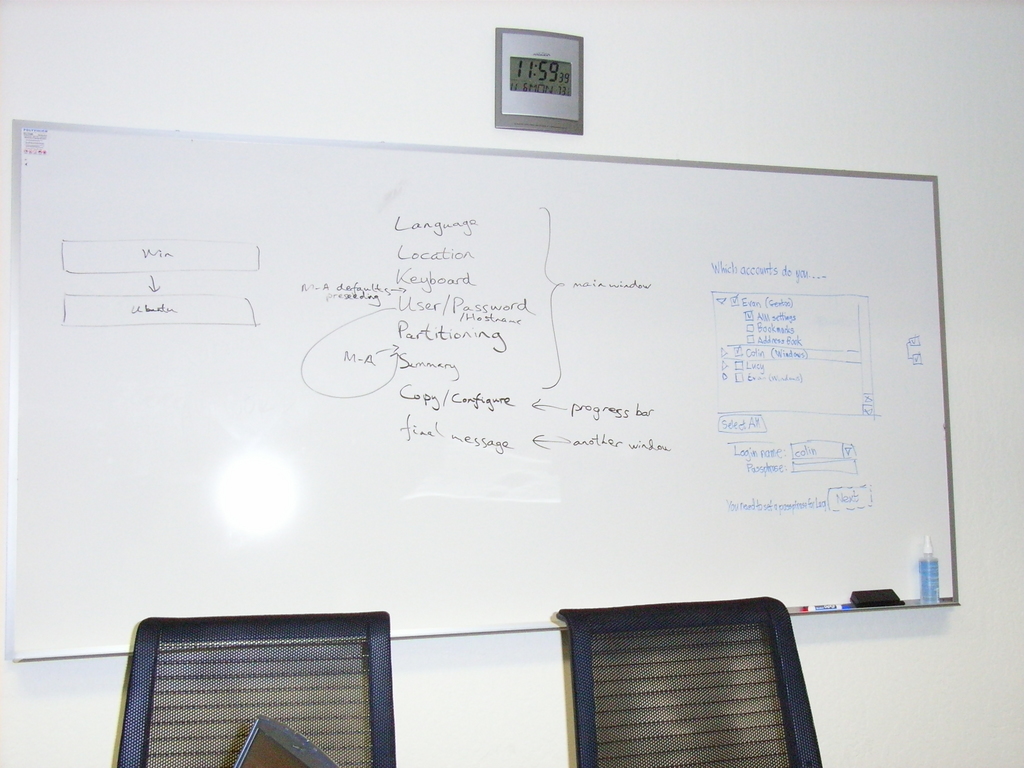 11:59 39
MON 13
Win
Ubuntu
Language
Location
Keyboard
M-A defaults
preseeding
User/Password
/Hostname
Partitioning
M-A
Summary
Copy/Configure
final message
main window
progress bar
another window
Which accounts do you....
Evan (Gentoo)
AIM settings
Bookmarks
Address Book
Colin (Windows)
Lucy
(Windows)
Select All
Login name: colin
Passphrase:
You need to set a passphrase for
Next